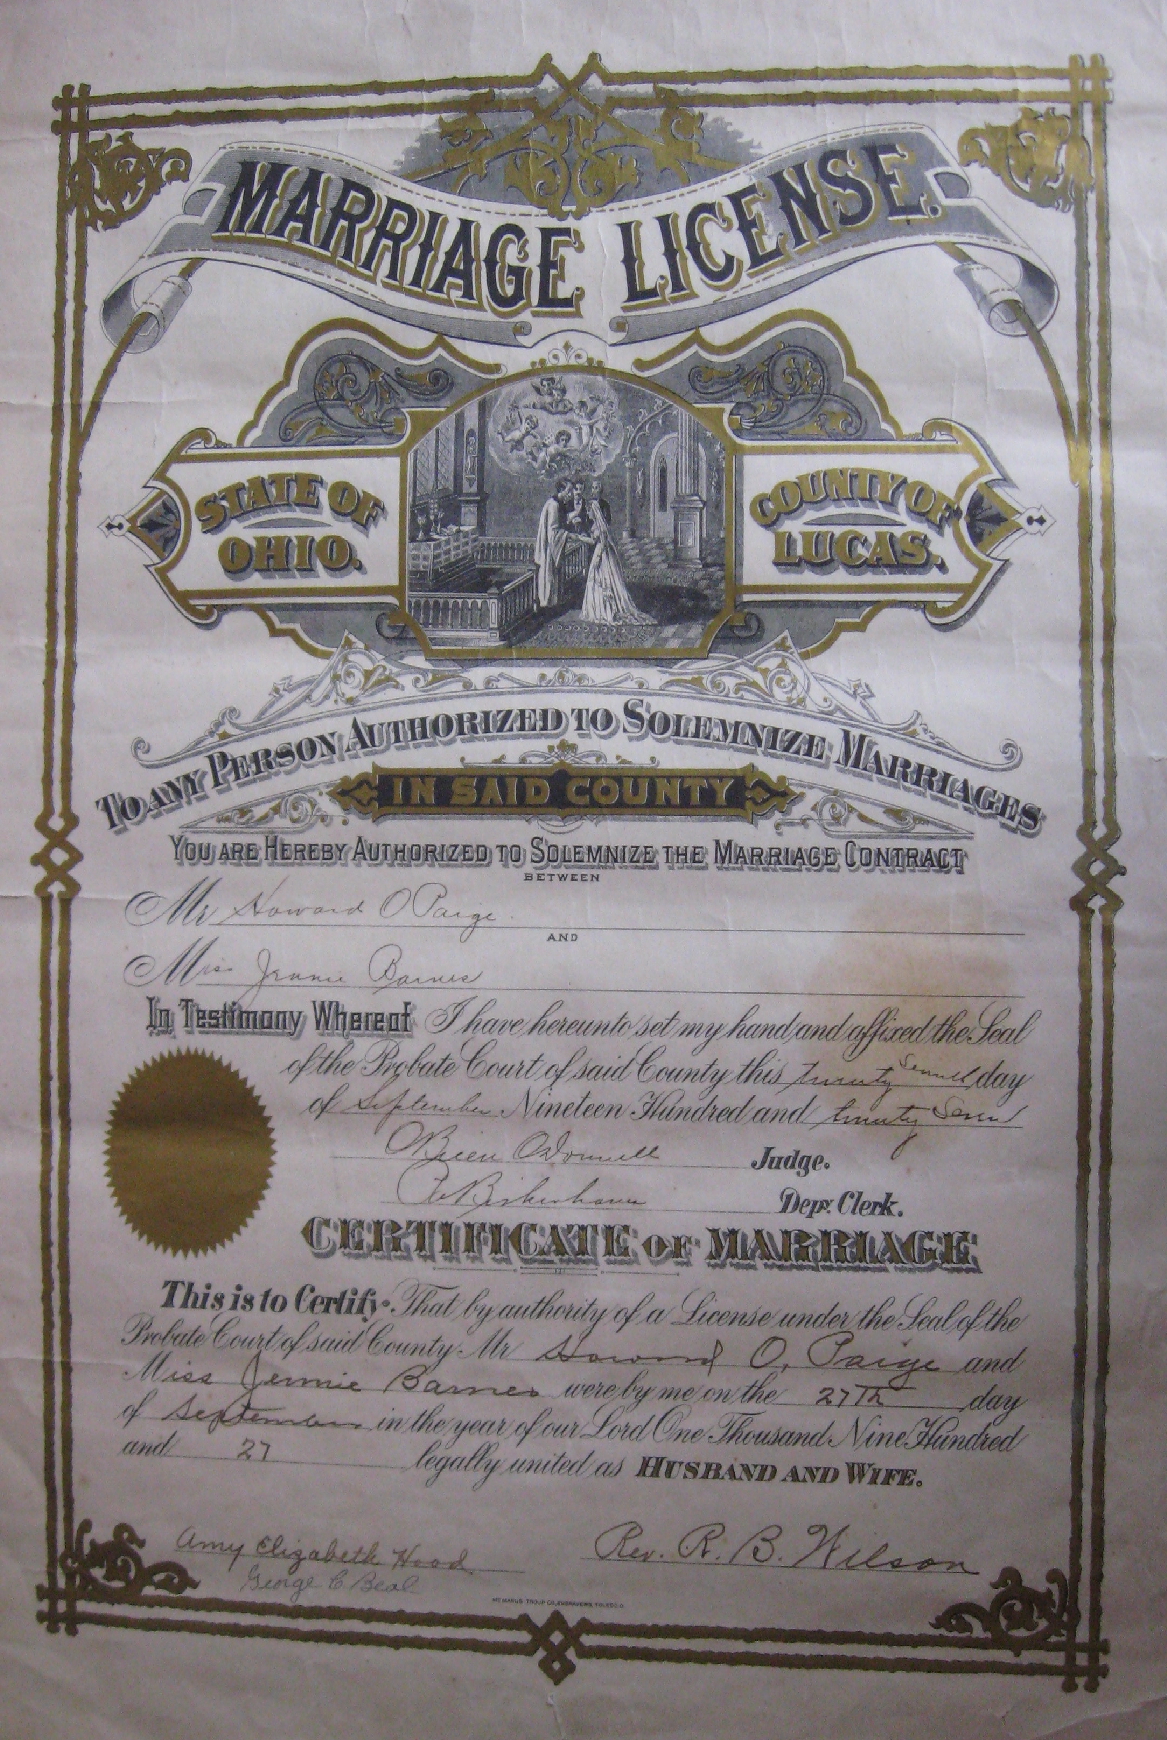 MARRIAGE LICENSE.
STATE OF OHIO.
COUNTY OF LUCAS.
TO ANY PERSON AUTHORIZED TO SOLEMNIZE MARRIAGES
IN SAID COUNTY
YOU ARE HEREBY AUTHORIZED TO SOLEMNIZE THE MARRIAGE CONTRACT
BETWEEN
Mr Howard O Paige
AND
Miss Jennie Barnes
In Testimony Whereof I have hereunto set my hand and affixed the Seal
of the Probate Court of said County this twenty seventh day
of September Nineteen Hundred and twenty seven
O'Brien O'Donnell Judge.
Depy. Clerk.
CERTIFICATE OF MARRIAGE
This is to Certify. That by authority of a License under the Seal of the
Probate Court of said County Mr Howard O. Paige and
Miss Jennie Barnes were by me on the 27Th day
of September in the year of our Lord One Thousand Nine Hundred
and 27 legally united as HUSBAND AND WIFE.
Amy Elizabeth Hood Rev. R. B. Wilson
George C Beal
TROUP CO. TOLEDO.